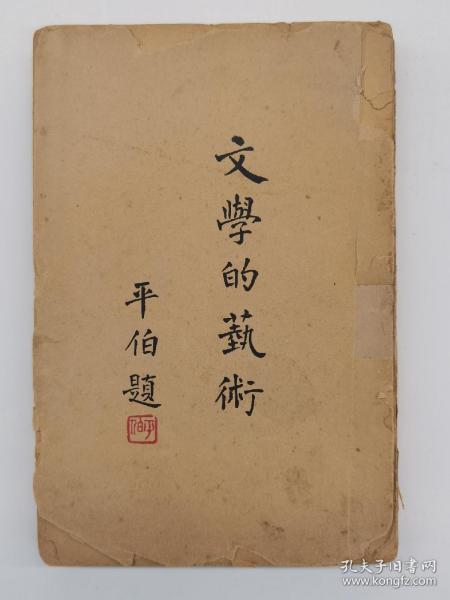 文學的藝術
平伯題
平伯
孔夫子旧书网
www.kongfz.com